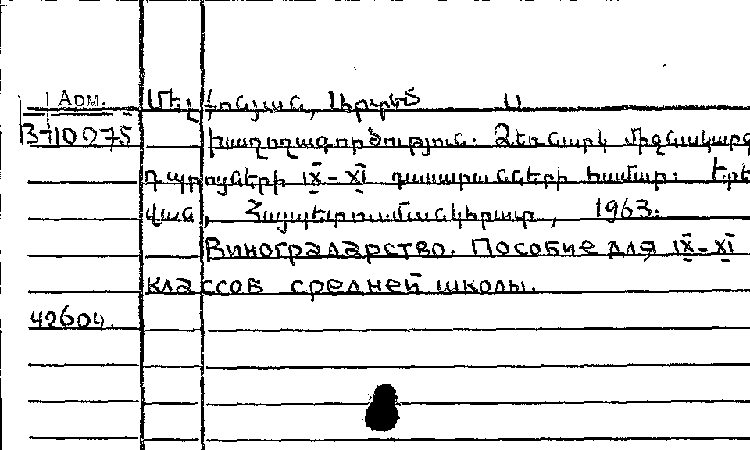 Арм. Մելքոնյան, Արտեմ Ա
В-710275 Խաղողագործություն. Ձեռնարկ միջնակարգ
դպրոցների IX-XI դասարանների համար: Երև
վան, Հայպետուսմանկհրատ, 1963:
Виноградарство. Пособие для IX-XI
классов средней школы.
42604.